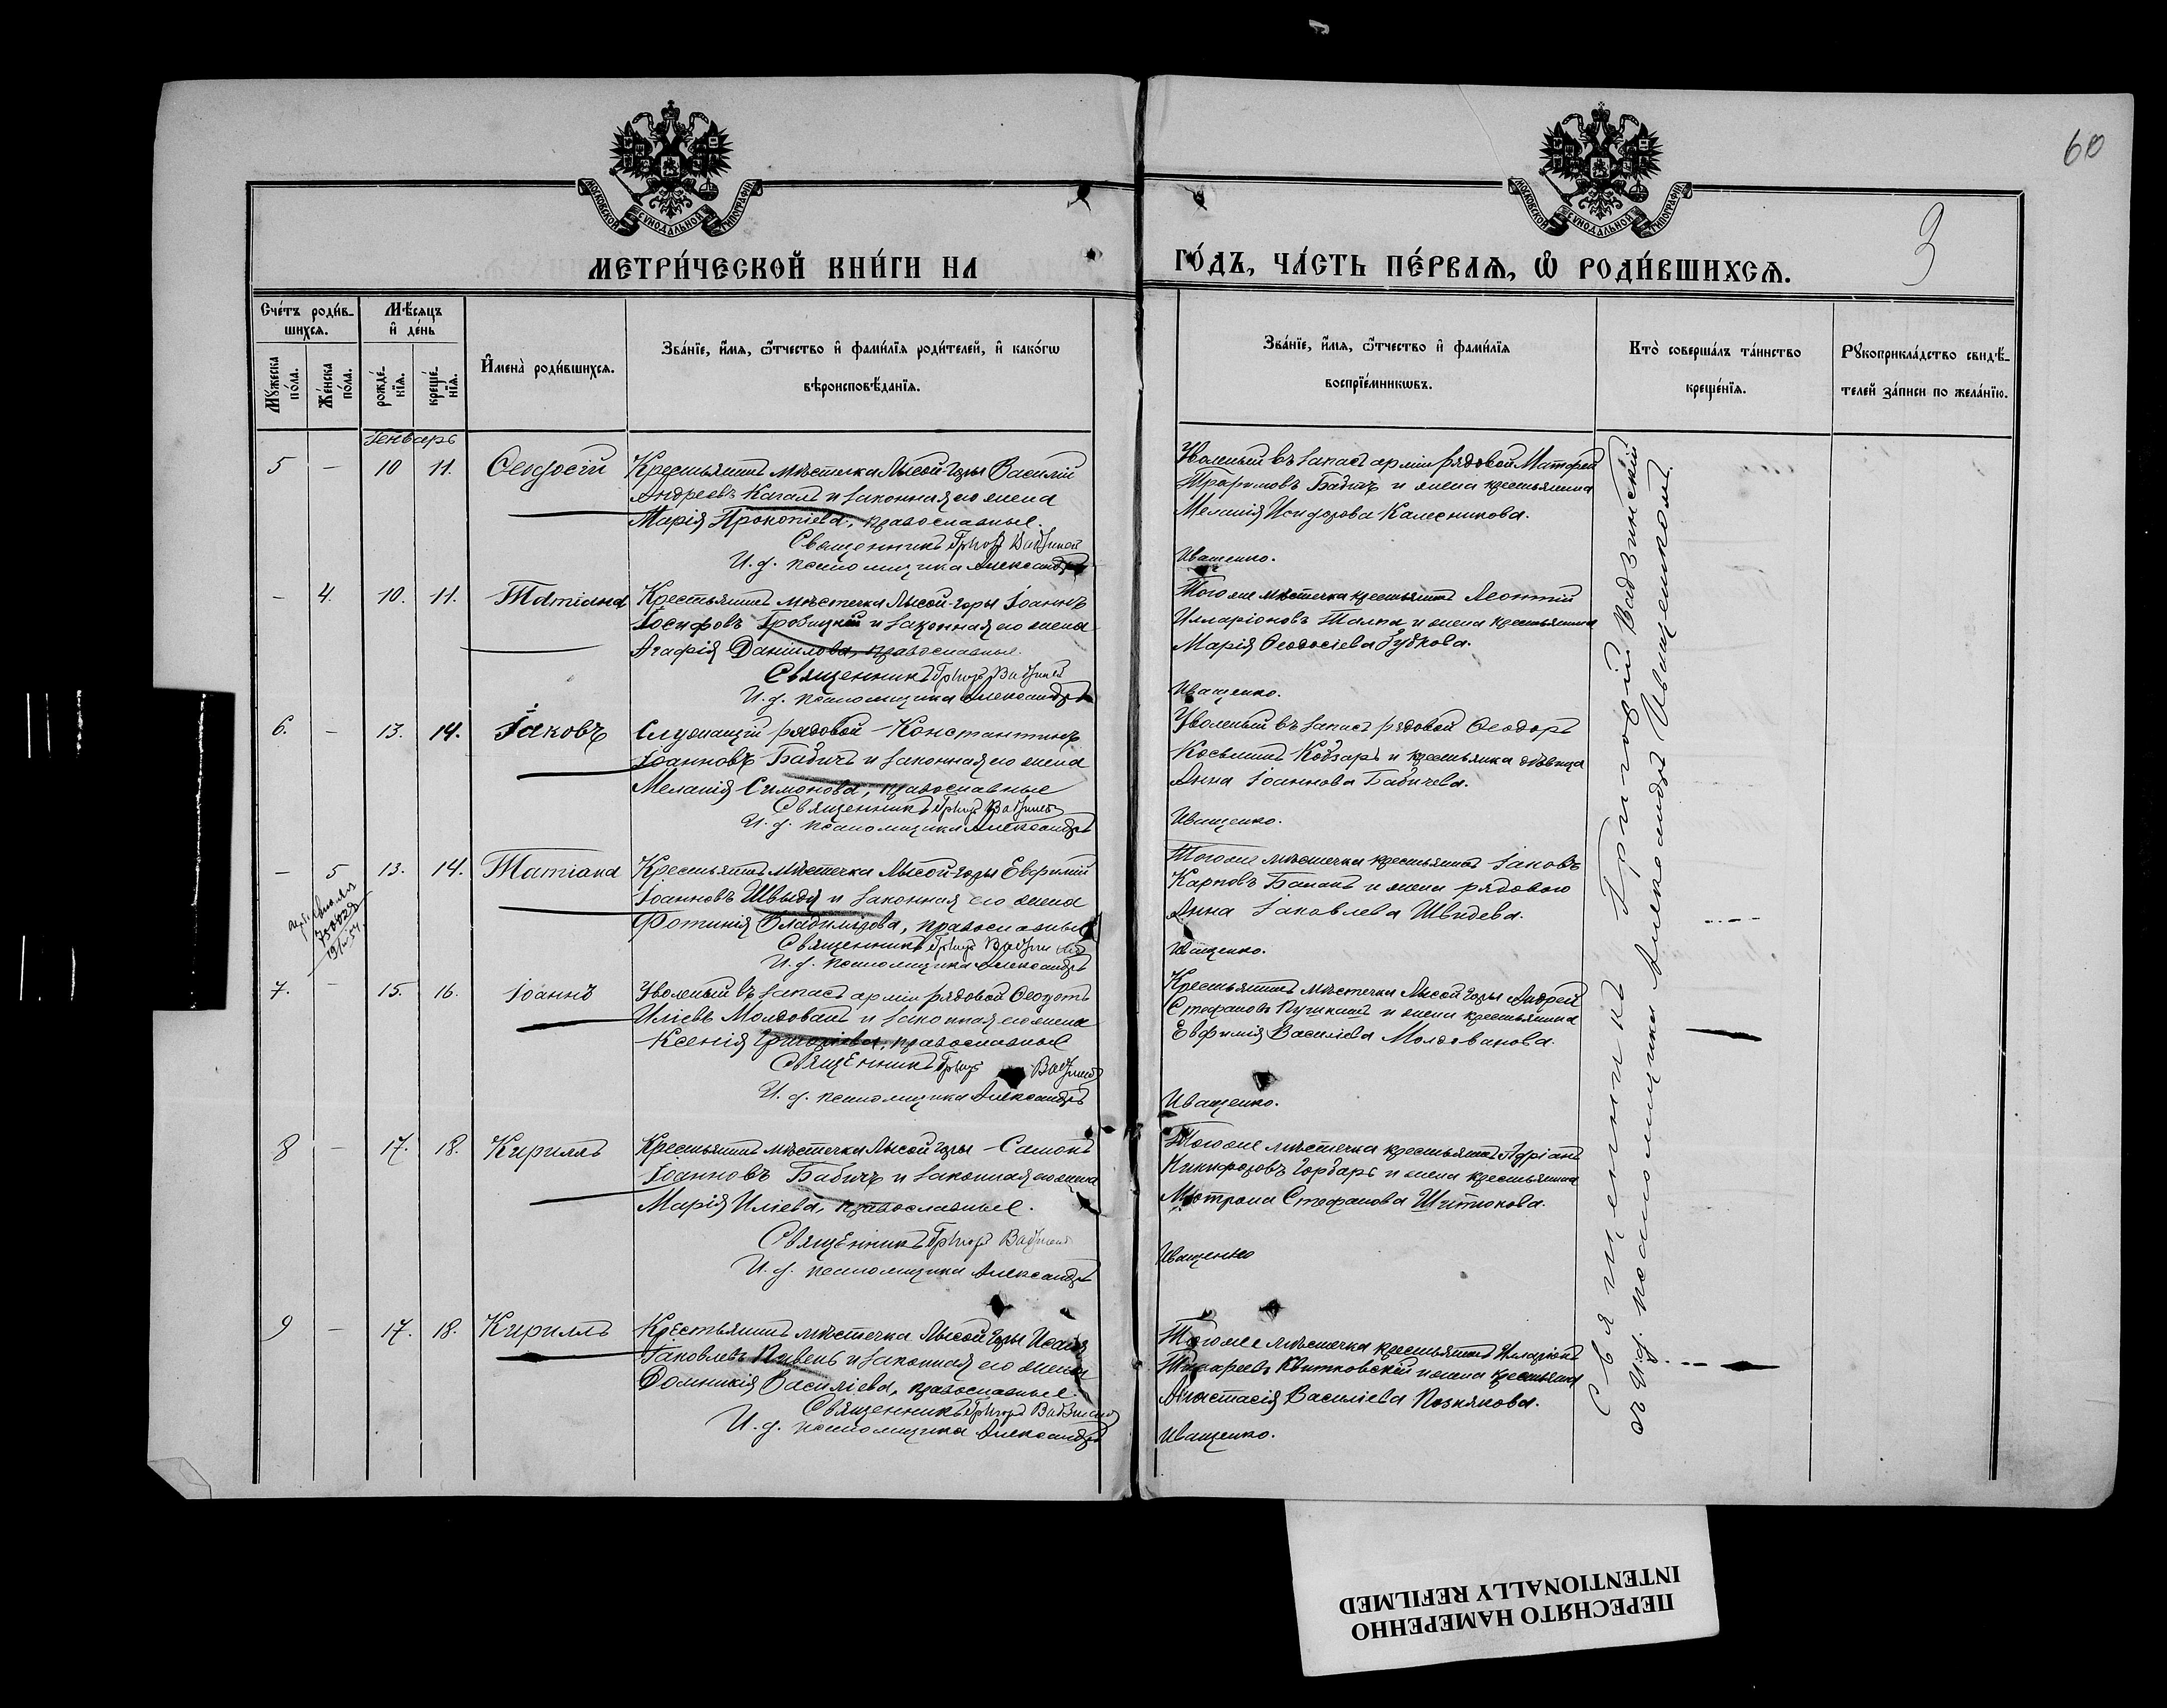 60
3
МОСКОВСКОЙ СѴНОДАЛЬНОЙ ТИПОГРАФІИ
МОСКОВСКОЙ СѴНОДАЛЬНОЙ ТИПОГРАФІИ
МЕТРИ́ЧЕСКОЙ КНИ́ГИ НА
ГО́ДЪ, ЧА́СТЬ ПЕ́РВАѦ, Ѿ РОДИ́ВШИХСѦ.
Сче́тъ роди́в-
шихсѧ.
Мꙋ́жеска по́ла.
Же́нска по́ла.
Мѣ́сѧцъ
и҆ де́нь
рожде́-
нїѧ.
креще́-
нїѧ.
И҆мена̀ роди́вшихсѧ.
Зва́нїе, и҆́мѧ, ѻ҆́тчество и҆ фами́лїѧ роди́телей, и҆ како́гѡ
вѣроисповѣ́данїѧ.
Зва́нїе, и҆́мѧ, ѻ҆́тчество и҆ фами́лїѧ
воспрїе́мникѡвъ.
Кто̀ соверша́лъ та́инство
креще́нїѧ.
Рꙋкоприкла́дство свидѣ́-
телей за́писи по жела́нїю.
Генварь
5 — 10 11. Ѳеодосій
Крестьянинъ мѣстечка Лысой Горы Василій
Андреевъ Кагалъ и законная его жена
Марія Прокопіева, православные.
Священникъ
И. д. псаломщика Александръ
Уволеный въ запасъ арміи рядовой Матфей
Трофимовъ Бабичъ и жена крестьянина
Меланія Исидорова Калесникова.
Иващенко.
— 4. 10. 11. Татіана
Крестьянинъ мѣстечка Лысой-горы Іоаннъ
Іосифовъ Гробицкій и законная его жена
Агафія Данилова, православные.
Священникъ
И. д. псаломщика Александръ
Того же мѣстечка крестьянинъ Леонтій
Илларіоновъ Талпа и жена крестьянина
Марія Ѳеодосіева Зубкова.
Иващенко.
6. — 13. 14. Іаковъ
Служащій рядовой Константинъ
Іоанновъ Бабичъ и законная его жена
Меланія Симонова, православные
Священникъ
И. д. псаломщика Александръ
Уволеный въ запасъ рядовой Ѳеодоръ
Косьминъ Кобзарь и крестьянка дѣвица
Анна Іоаннова Бабичева.
Иващенко.
— 5 13. 14. Татіана
Крестьянинъ мѣстечка Лысой-горы Евфимій
Іоанновъ Швыдя и законная его жена
Фотинія Владимірова, православные
Священникъ
И. д. псаломщика Александръ
Того же мѣстечка крестьянинъ Іаковъ
Карповъ Баланъ и жена рядового
Анна Іаковлева Швидева.
Иващенко.
7. — 15. 16. Іоаннъ
Уволеный въ запасъ арміи рядовой Ѳеодотъ
Иліевъ Молдованъ и законная его жена
Ксенія Григоріева, православные
Священникъ
И. д. псаломщика Александръ
Крестьянинъ мѣстечка Лысой Горы Андрей
Стефановъ Пугикинъ и жена крестьянина
Евфимія Василіева Молдованова.
Иващенко.
8 — 17. 18. Кириллъ
Крестьянинъ мѣстечка Лысой горы Самонъ
Іоанновъ Бабичъ и законная его жена
Марія Иліева, православные.
Священникъ
И. д. псаломщика Александръ
Того же мѣстечка крестьянинъ Адріанъ
Никифоровъ Горбарь и жена крестьянина
Мотрона Стефанова Шитикова.
Иващенко
9 — 17. 18. Кириллъ
Крестьянинъ мѣстечка Лысой Горы Исаія
Іаковлевъ Пивень и законная его жена
Домникія Василіева, православные.
Священникъ
И. д. псаломщика Александръ
Того же мѣстечка крестьянинъ Илларіонъ
Квитковскій и жена крестьянина
Анастасія Василіева Познякова.
Иващенко.
Священникъ Григорій Вадзинскій
съ И.д. псаломщика Александръ Иващенкомъ.
ПЕРЕСНЯТО НАМЕРЕННО
INTENTIONALLY REFILMED